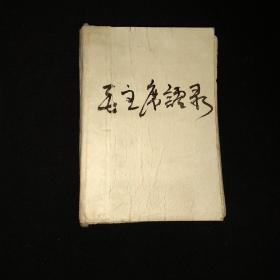 毛主席语录